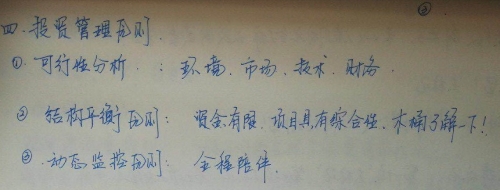 ②
四.投资管理原则.
① 可行性分析 : 环境.市场.技术.财务.
② 结构平衡原则: 资金有限.项目具有综合性.木桶了解一下!
③ 动态监控原则: 全程陪伴.